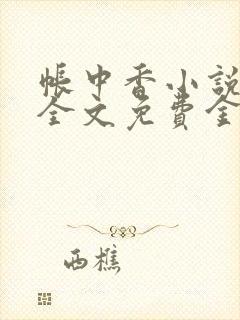 帳中香小說
全文免費全
西樵